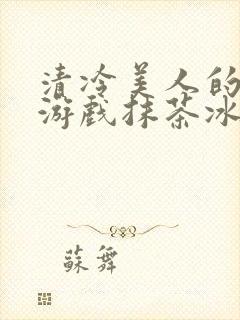 清冷美人的
游戏抹茶冰
蘇舞